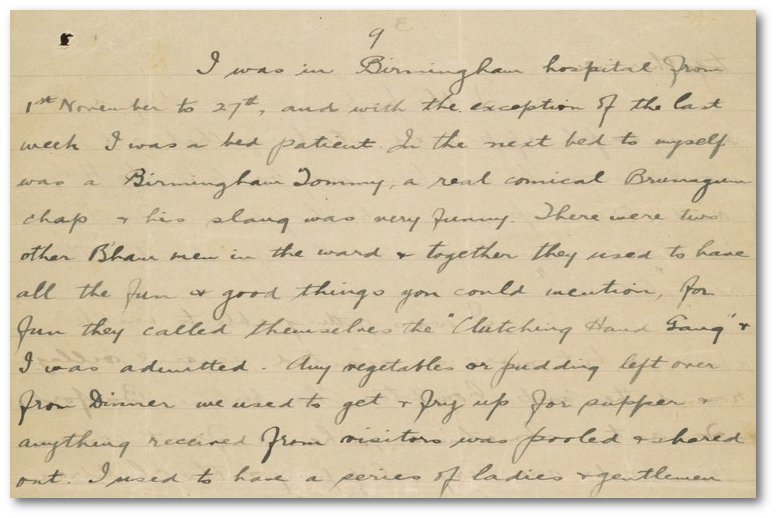 9
I was in Birmingham hospital from
1st November to 27th, and with the exception of the last
week I was a bed patient. In the next bed to myself
was a Birmingham Tommy, a real comical Brumagem
chap & his slang was very funny. There were two
other Bham men in the ward & together they used to have
all the fun & good things you could mention, for
fun they called themselves the "Clutching Hand Gang" &
I was admitted. Any vegetables or pudding left over
from Dinner we used to get & fry up for supper &
anything received from visitors was pooled & shared
out. I used to have a series of ladies & gentlemen